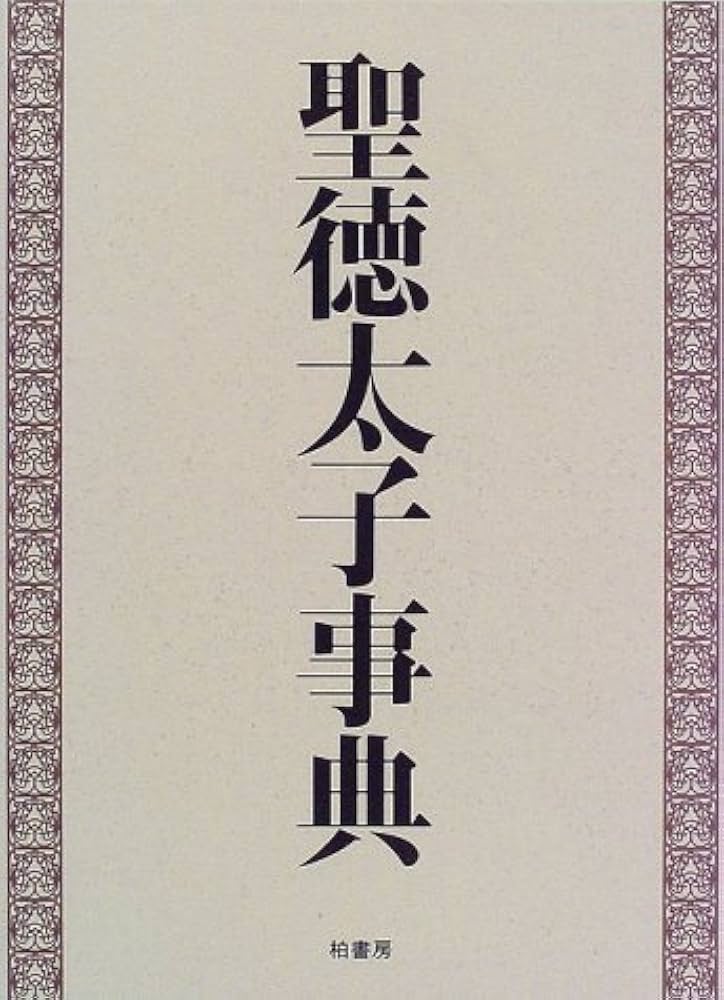 聖徳太子事典
柏書房